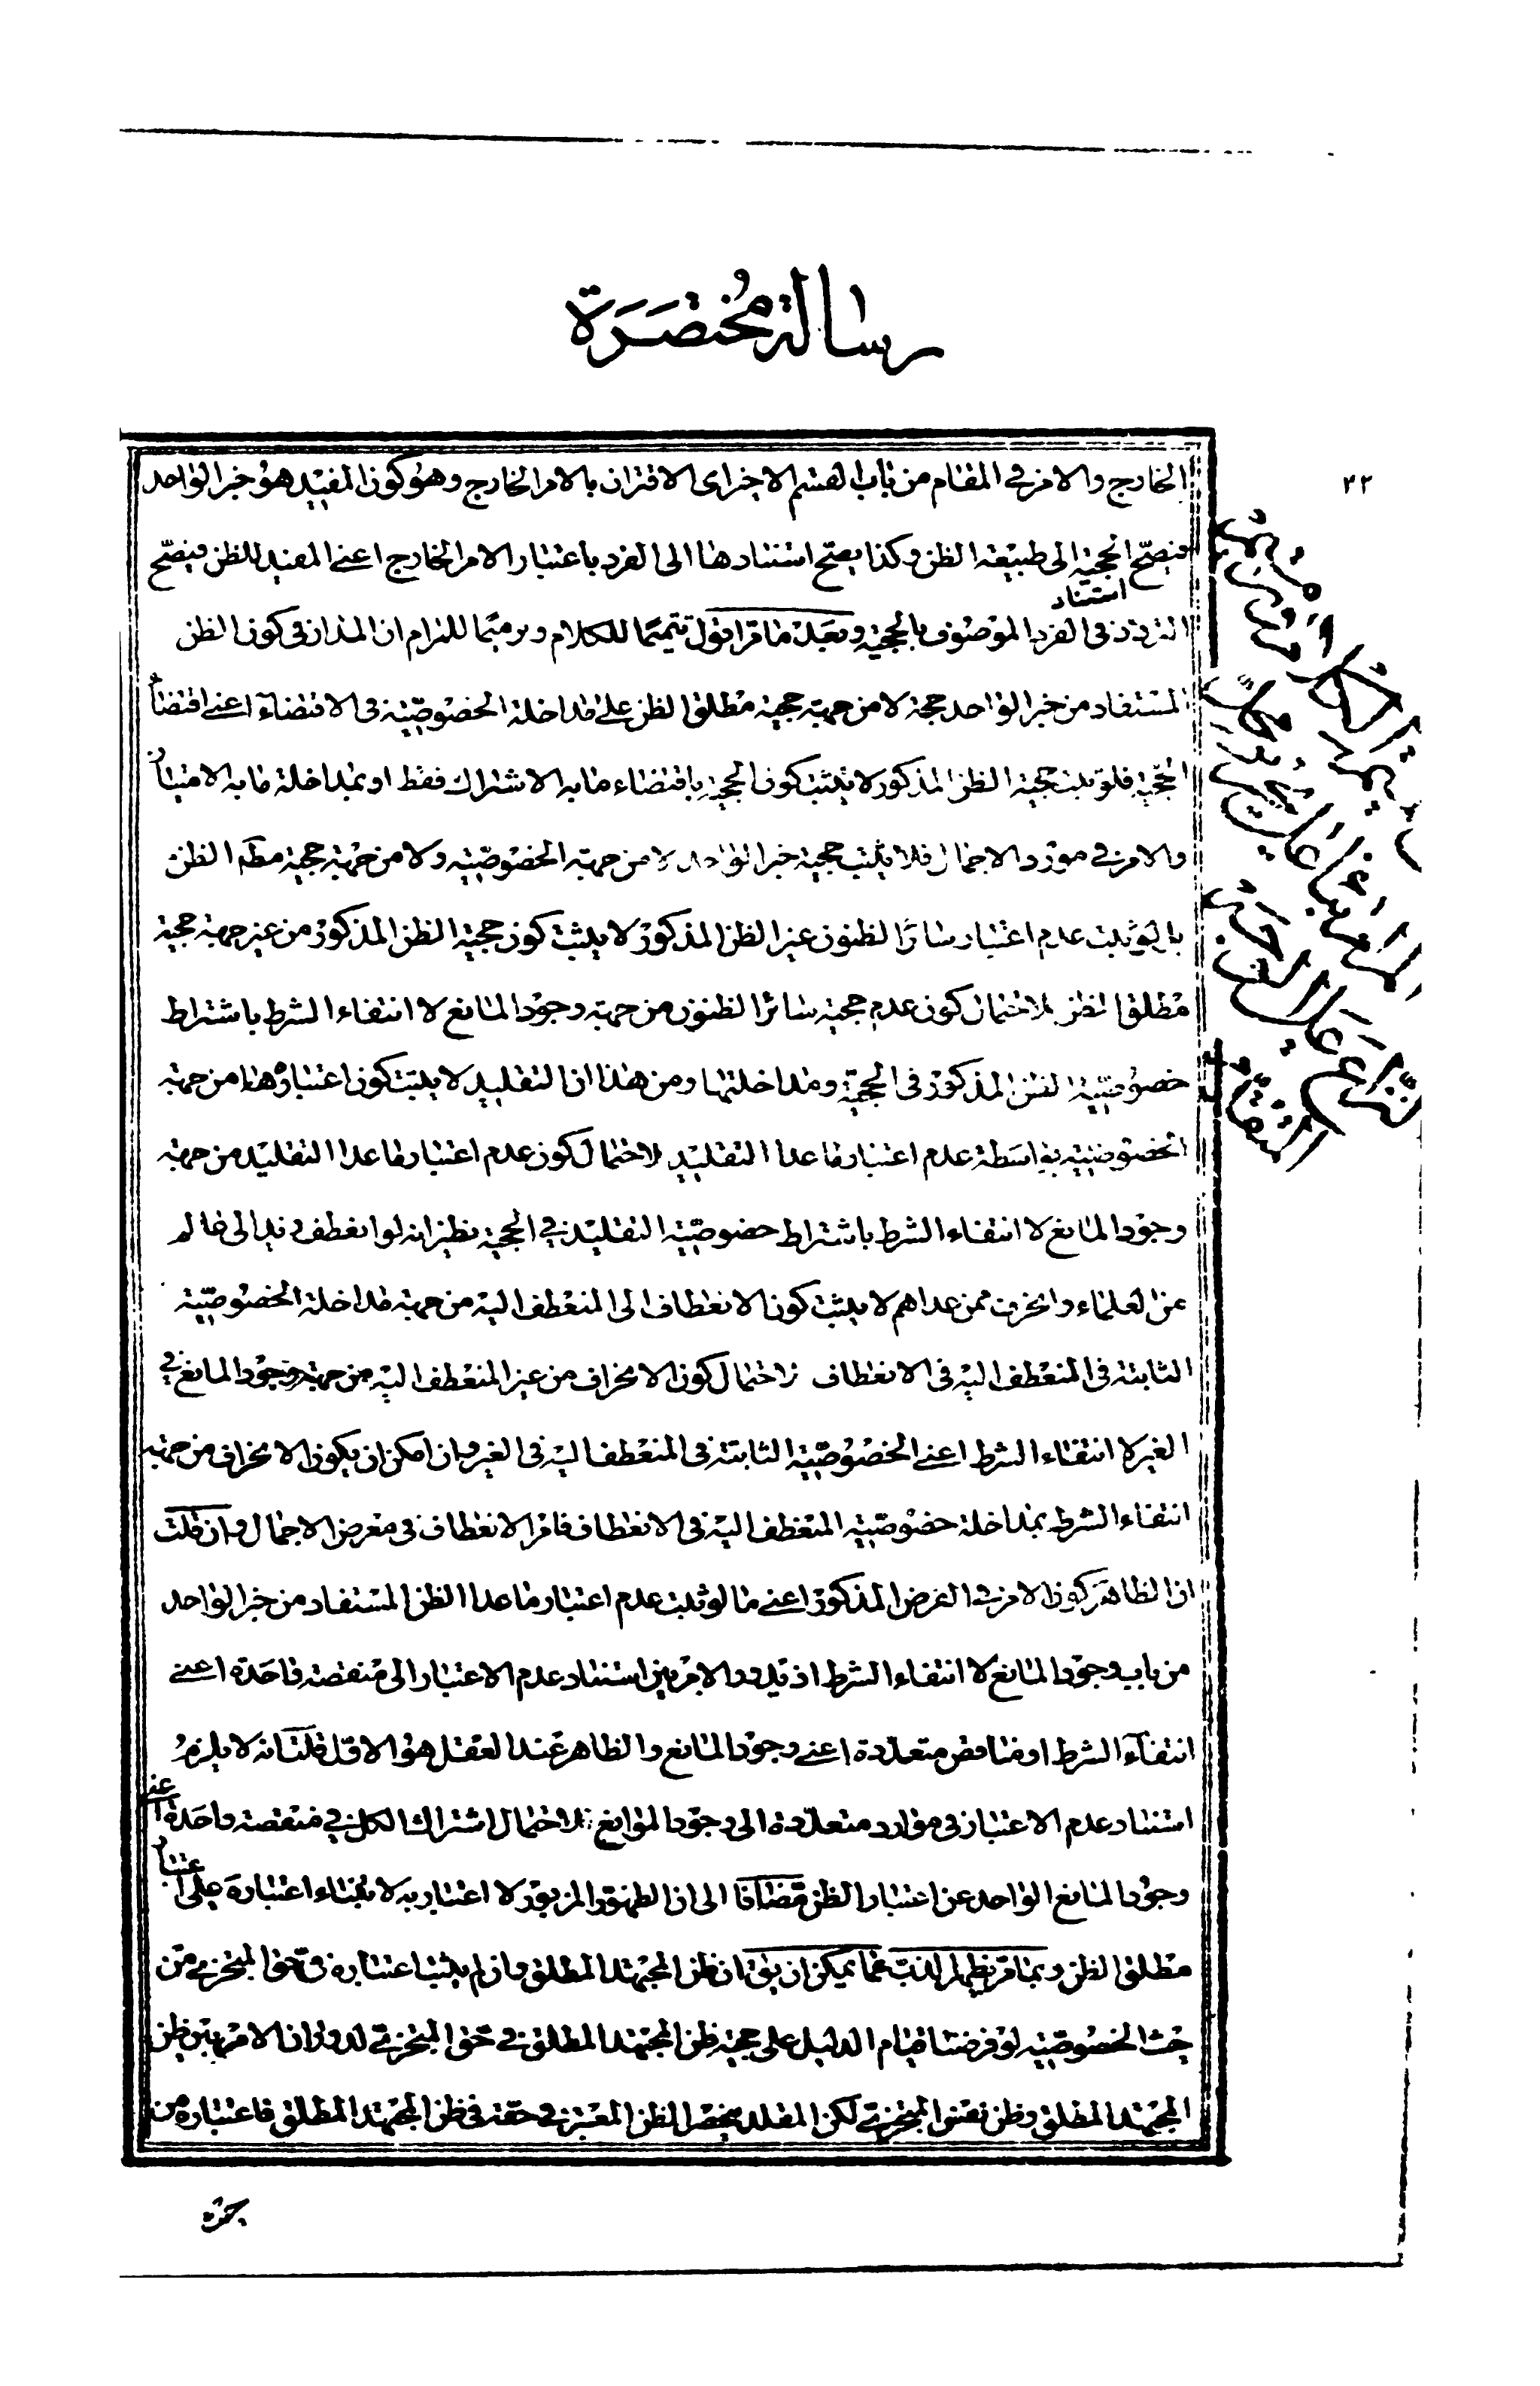 رسالة مختصرة
٢٢
الخارج والامر في المقام من باب القسم الاخير اى الاقتران بالامر الخارج وهو كون المفيد هو خبر الواحد
فيصح الحجية الى طبيعة الظن وكذا يصح استنادها الى الفرد باعتبار الامر الخارج اعنى المفيد للظن فيصح
استناد
التردد فى الفرد الموصوف بالحجية وبعد ما مر اقول تتميما للكلام وترميما للمرام ان المدار فى كون الظن
المستفاد من خبر الواحد حجة لا من جهة حجية مطلق الظن على مداخلة الخصوصية فى الاقتضاء اعنى اقتضاء
الحجية فلو ثبت حجية الظن المذكور لا يثبت كون الحجية باقتضاء ما به الاشتراك فقط او بمداخلة ما به الامتياز
والامر فى مورد الاجمال فلا يثبت حجية خبر الواحد لا من جهة الخصوصية ولا من جهة حجية مطم الظن
بل لو ثبت عدم اعتبار سائر الظنون غير الظن المذكور لا يثبت كون حجية الظن المذكور من غير جهة حجية
مطلق الظن لاحتمال كون عدم حجية سائر الظنون من جهة وجود المانع لا انتفاء الشرط باشتراط
خصوصية الظن المذكور فى الحجية ومداخلتها ومن هذا ان التقليد لا يثبت كون اعتباره من جهة
الخصوصية بواسطة عدم اعتبار ما عدا التقليد لاحتمال كون عدم اعتبار ما عدا التقليد من جهة
وجود المانع لا انتفاء الشرط باشتراط خصوصية التقليد فى الحجية نظير انه لو انعطف زيد الى عالم
من العلماء وانحرف ممن عداهم لا يثبت كون الانعطاف الى المنعطف اليه من جهة مداخلة الخصوصية
الثابتة فى المنعطف اليه فى الانعطاف لاحتمال كون الانحراف من غير المنعطف اليه من جهة وجود المانع فى
الغير لا انتفاء الشرط اعنى الخصوصية الثابتة فى المنعطف اليه فى الغير وان امكن ان يكون الانحراف من جهة
انتفاء الشرط بمداخلة خصوصية المنعطف اليه فى الانعطاف فامر الانعطاف فى معرض الاجمال وان قلت
ان الظاهر كون الامر فى الفرض المذكور اعنى ما لو ثبت عدم اعتبار ما عدا الظن المستفاد من خبر الواحد
من باب وجود المانع لا انتفاء الشرط اذ يدور الامر بين استناد عدم الاعتبار الى منقصة واحدة اعنى
انتفاء الشرط او مناقص متعددة اعنى وجود المانع والظاهر عند العقل هو الاقل قلت انه لا يلزم
استناد عدم الاعتبار فى موارد متعددة الى وجود الموانع لاحتمال اشتراك الكل فى منقصة واحدة اعنى
وجود المانع الواحد عن اعتبار الظن مضافا الى ان الظهور المزبور لا اعتبار به لابتناء اعتباره على اعتبار
مطلق الظن وبما مر يظهر الذب عما يمكن ان يق ان ظن المجتهد المطلق وان لم يثبت اعتباره فى حق المتجزى من
حيث الخصوصية لو فرضنا قيام الدليل على حجية ظن المجتهد المطلق فى حق المتجزى لدوران الامر بين ظن
المجتهد المطلق وظن نفس المتجزى لكن المقلد ينحصر الظن المعتبر فى حقه فى ظن المجتهد المطلق فاعتباره من